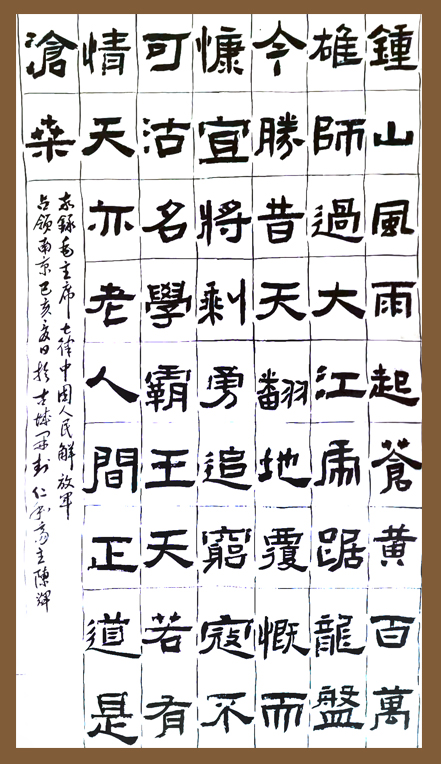 鍾山風雨起蒼黄百萬
雄師過大江虎踞龍盤
今勝昔天翻地覆慨而
慷宜將剩勇追窮寇不
可沽名學霸王天若有
情天亦老人間正道是
滄桑
録毛主席七律中国人民解放軍
占領南京己亥夏日於古城開封仁齋主陳輝